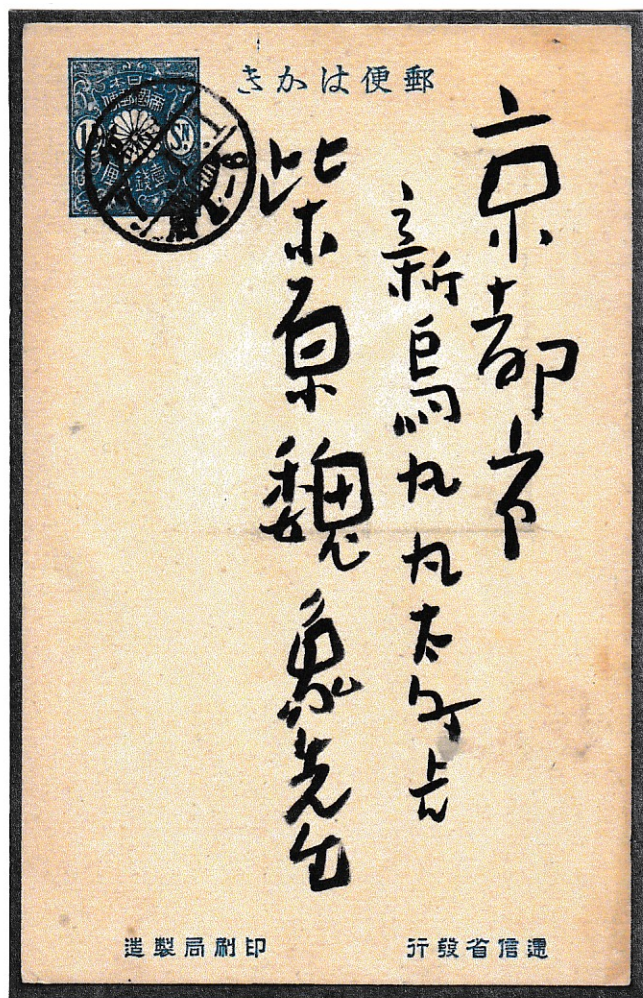 郵便はかき
京都市
新烏丸丸太町上ル
柴原魏象先生
遞信省發行
印刷局製造